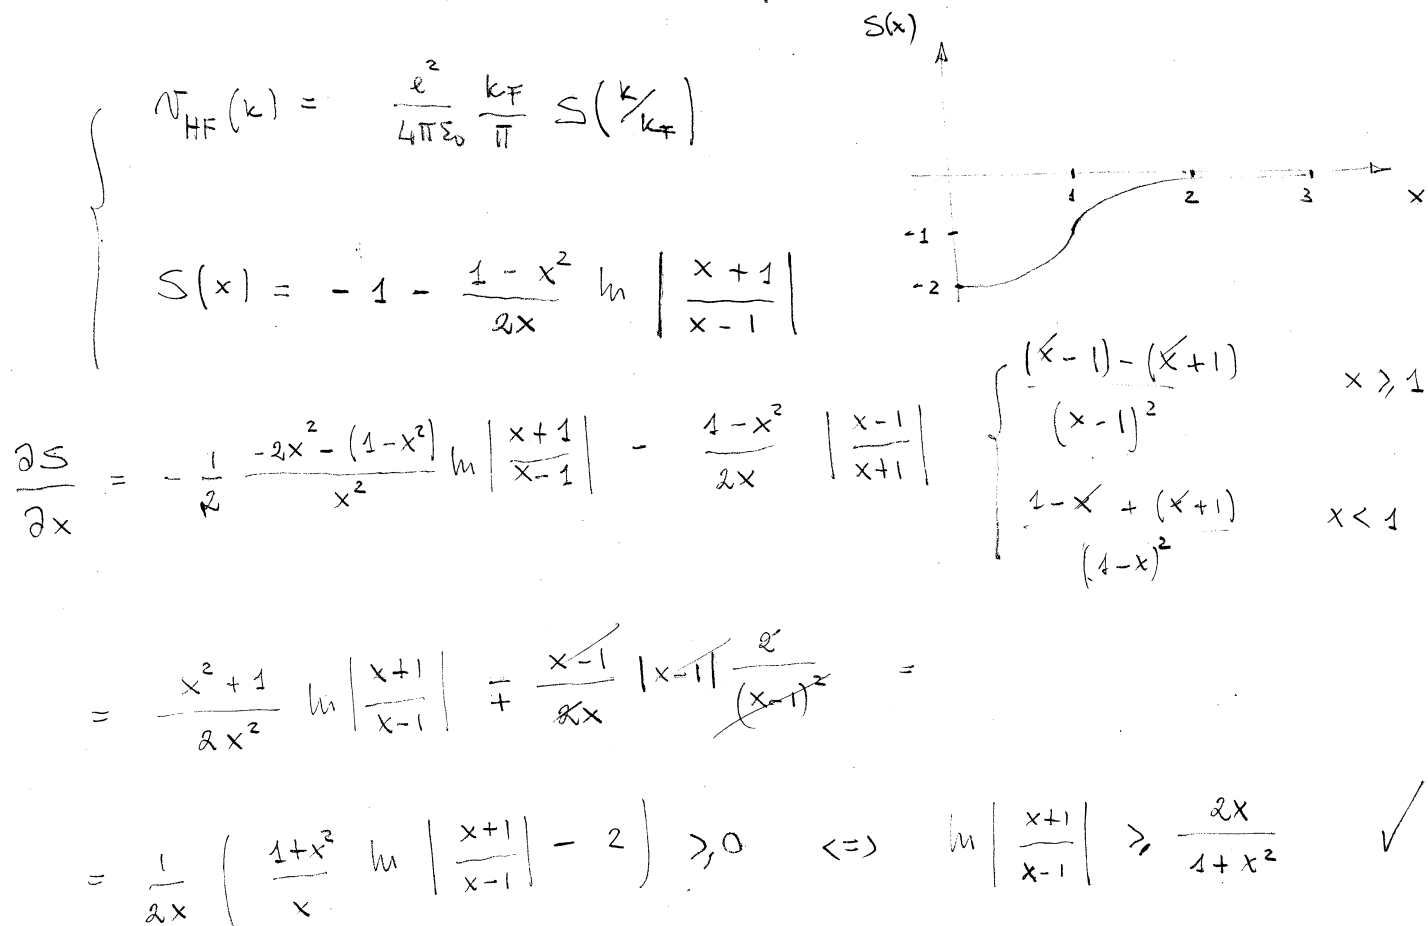 S(x)
v_HF(k) = e²/4πε₀ k_F/π S(k/k_F)
1 2 3 x
-1
-2
S(x) = - 1 - (1 - x²)/2x ln |(x + 1)/(x - 1)|
∂S/∂x = - 1/2 (-2x² - (1-x²))/x² ln |(x + 1)/(x - 1)| - (1-x²)/2x |(x-1)/(x+1)| { ((x-1) - (x+1))/(x-1)² x ⩾ 1
(1-x + (x+1))/(1-x)² x < 1
= (x² + 1)/2x² ln |(x+1)/(x-1)| ∓ (x-1)/2x |x-1| 2/(x-1)² =
= 1/2x ( (1+x²)/x ln |(x+1)/(x-1)| - 2 ) ⩾ 0 <=> ln |(x+1)/(x-1)| ⩾ 2x/(1+x²) ✓